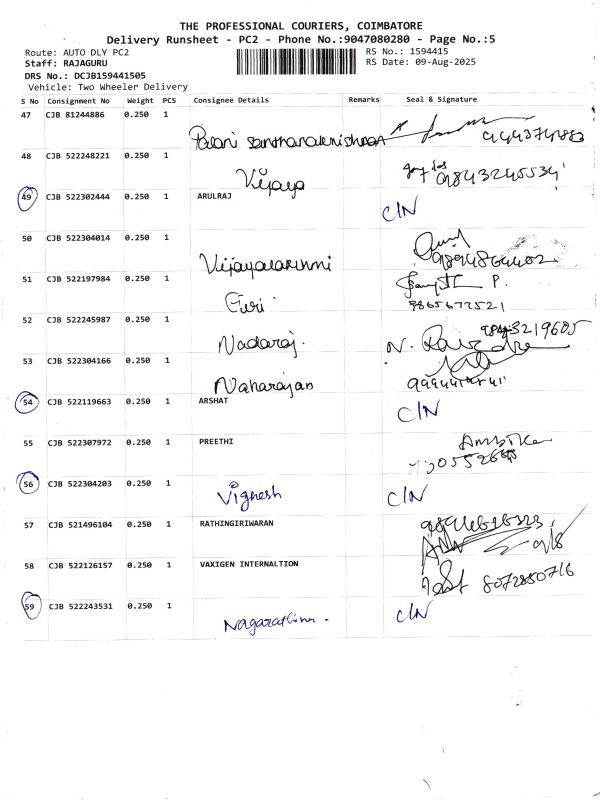 THE PROFESSIONAL COURIERS, COIMBATORE
Delivery Runsheet - PC2 - Phone No.:9047080280 - Page No.:5
Route: AUTO DLY PC2 RS No.: 1594415
Staff: RAJAGURU RS Date: 09-Aug-2025
DRS No.: DCJB159441505
Vehicle: Two Wheeler Delivery
S No Consignment No Weight PCS Consignee Details Remarks Seal & Signature
47 CJB 81244886 0.250 1
Palani
48 CJB 522248221 0.250 1
Vijaya 9843245534
49 CJB 522302444 0.250 1 ARULRAJ
C/N
50 CJB 522304014 0.250 1
9894864402
51 CJB 522197984 0.250 1
P.
9865672521
52 CJB 522245987 0.250 1
Nadaraj. N.
53 CJB 522304166 0.250 1
Naharajan
54 CJB 522119663 0.250 1 ARSHAT
C/N
55 CJB 522307972 0.250 1 PREETHI
Ambika
56 CJB 522304203 0.250 1
Vignesh C/N
57 CJB 521496104 0.250 1 RATHINGIRIWARAN
58 CJB 522126157 0.250 1 VAXIGEN INTERNALTION
8072850716
59 CJB 522243531 0.250 1
C/N